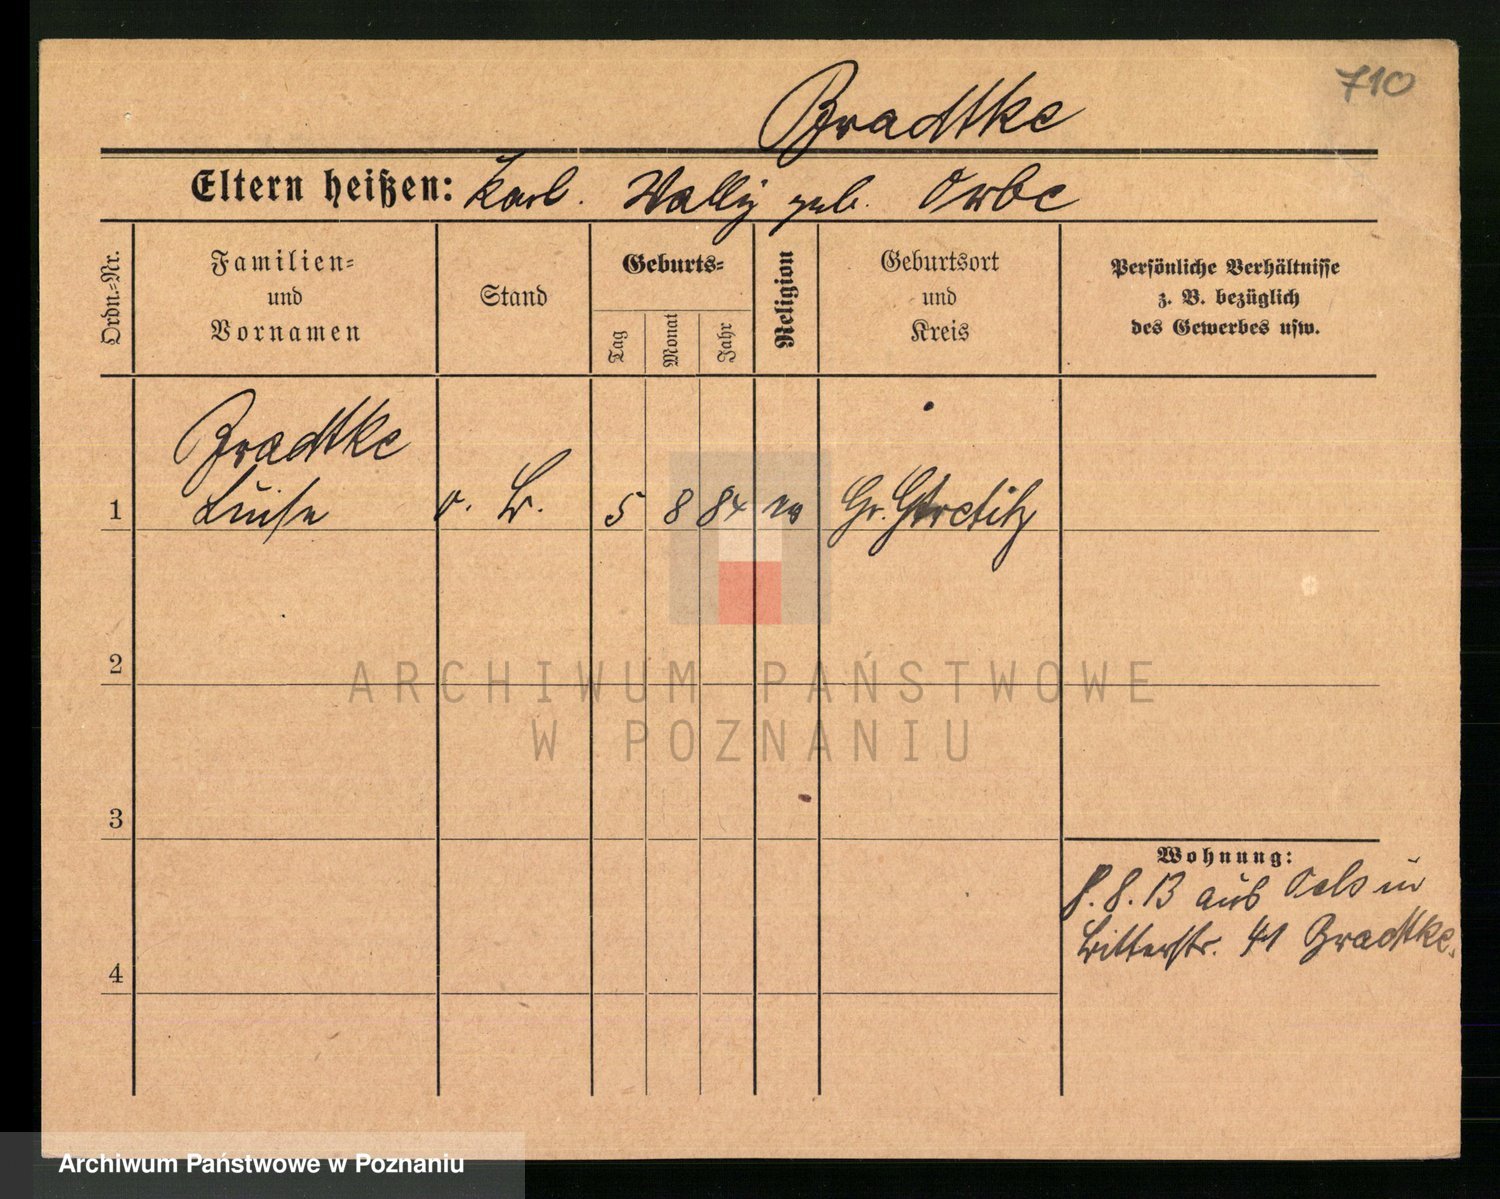 710
Bradtke
Eltern heißen: Karl. Wally geb. Orbe
Ordn.-Nr.
Familien-
und
Vornamen
Stand
Geburts-
Tag
Monat
Jahr
Religion
Geburtsort
und
Kreis
Persönliche Verhältnisse
z. B. bezüglich
des Gewerbes usw.
Bradtke
1 Luise o. B. 5 8 84 ev Gr.
2
3
4
Wohnung:
8. 8. 13 aus Oels in
Ritterstr. 41 Bradtke.
ARCHIWUM PAŃSTWOWE
W POZNANIU
Archiwum Państwowe w Poznaniu